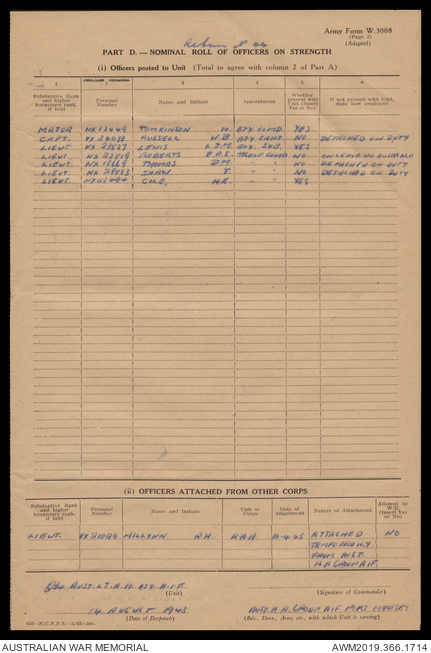 Army Form W.3008
(Page 2)
(Adapted)
Return
PART D.—NOMINAL ROLL OF OFFICERS ON STRENGTH
(i) Officers posted to Unit (Total to agree with column 2 of Part A)
1 2 3 4 5 6
Substantive Rank and higher temporary rank, if held Personal Number Name and Initials Appointment Whether present with Unit (Insert Yes or No) If not present with Unit, state how employed
MAJOR TOMKINSON W. BTY COMD. YES
CAPT. RUSSELL W.B. BTY CAPT. NO DETACHED ON DUTY
LIEUT. LEWIS L.J.M. BTY. SUB. YES
LIEUT ROBERTS E.P.S. TROOP COMD. NO ON LEAVE IN AUSTRALIA
LIEUT. THOMAS D.M. " " NO DETACHED ON DUTY
LIEUT SHAW T. " " NO DETACHED ON DUTY
LIEUT. COLE, H.E. " " YES
(ii) OFFICERS ATTACHED FROM OTHER CORPS
Substantive Rank and higher temporary rank, if held Personal Number Name and Initials Unit or Corps Date of Attachment Nature of Attachment Allowed by W.E. (Insert Yes or No)
LIEUT. R.H. RAA ATTACHED NO
TEMPORARILY
FROM AUST.
H.A. GROUP AIF.
AUST. LT. A.A. BTY. A.I.F.
(Unit) (Signature of Commander)
14 AUGUST 1943 AUST. H.A. GROUP AIF PORT MORESBY
(Date of Despatch) (Bde, Divn., Area, etc., with which Unit is serving)
AUSTRALIAN WAR MEMORIAL AWM2019.366.1714